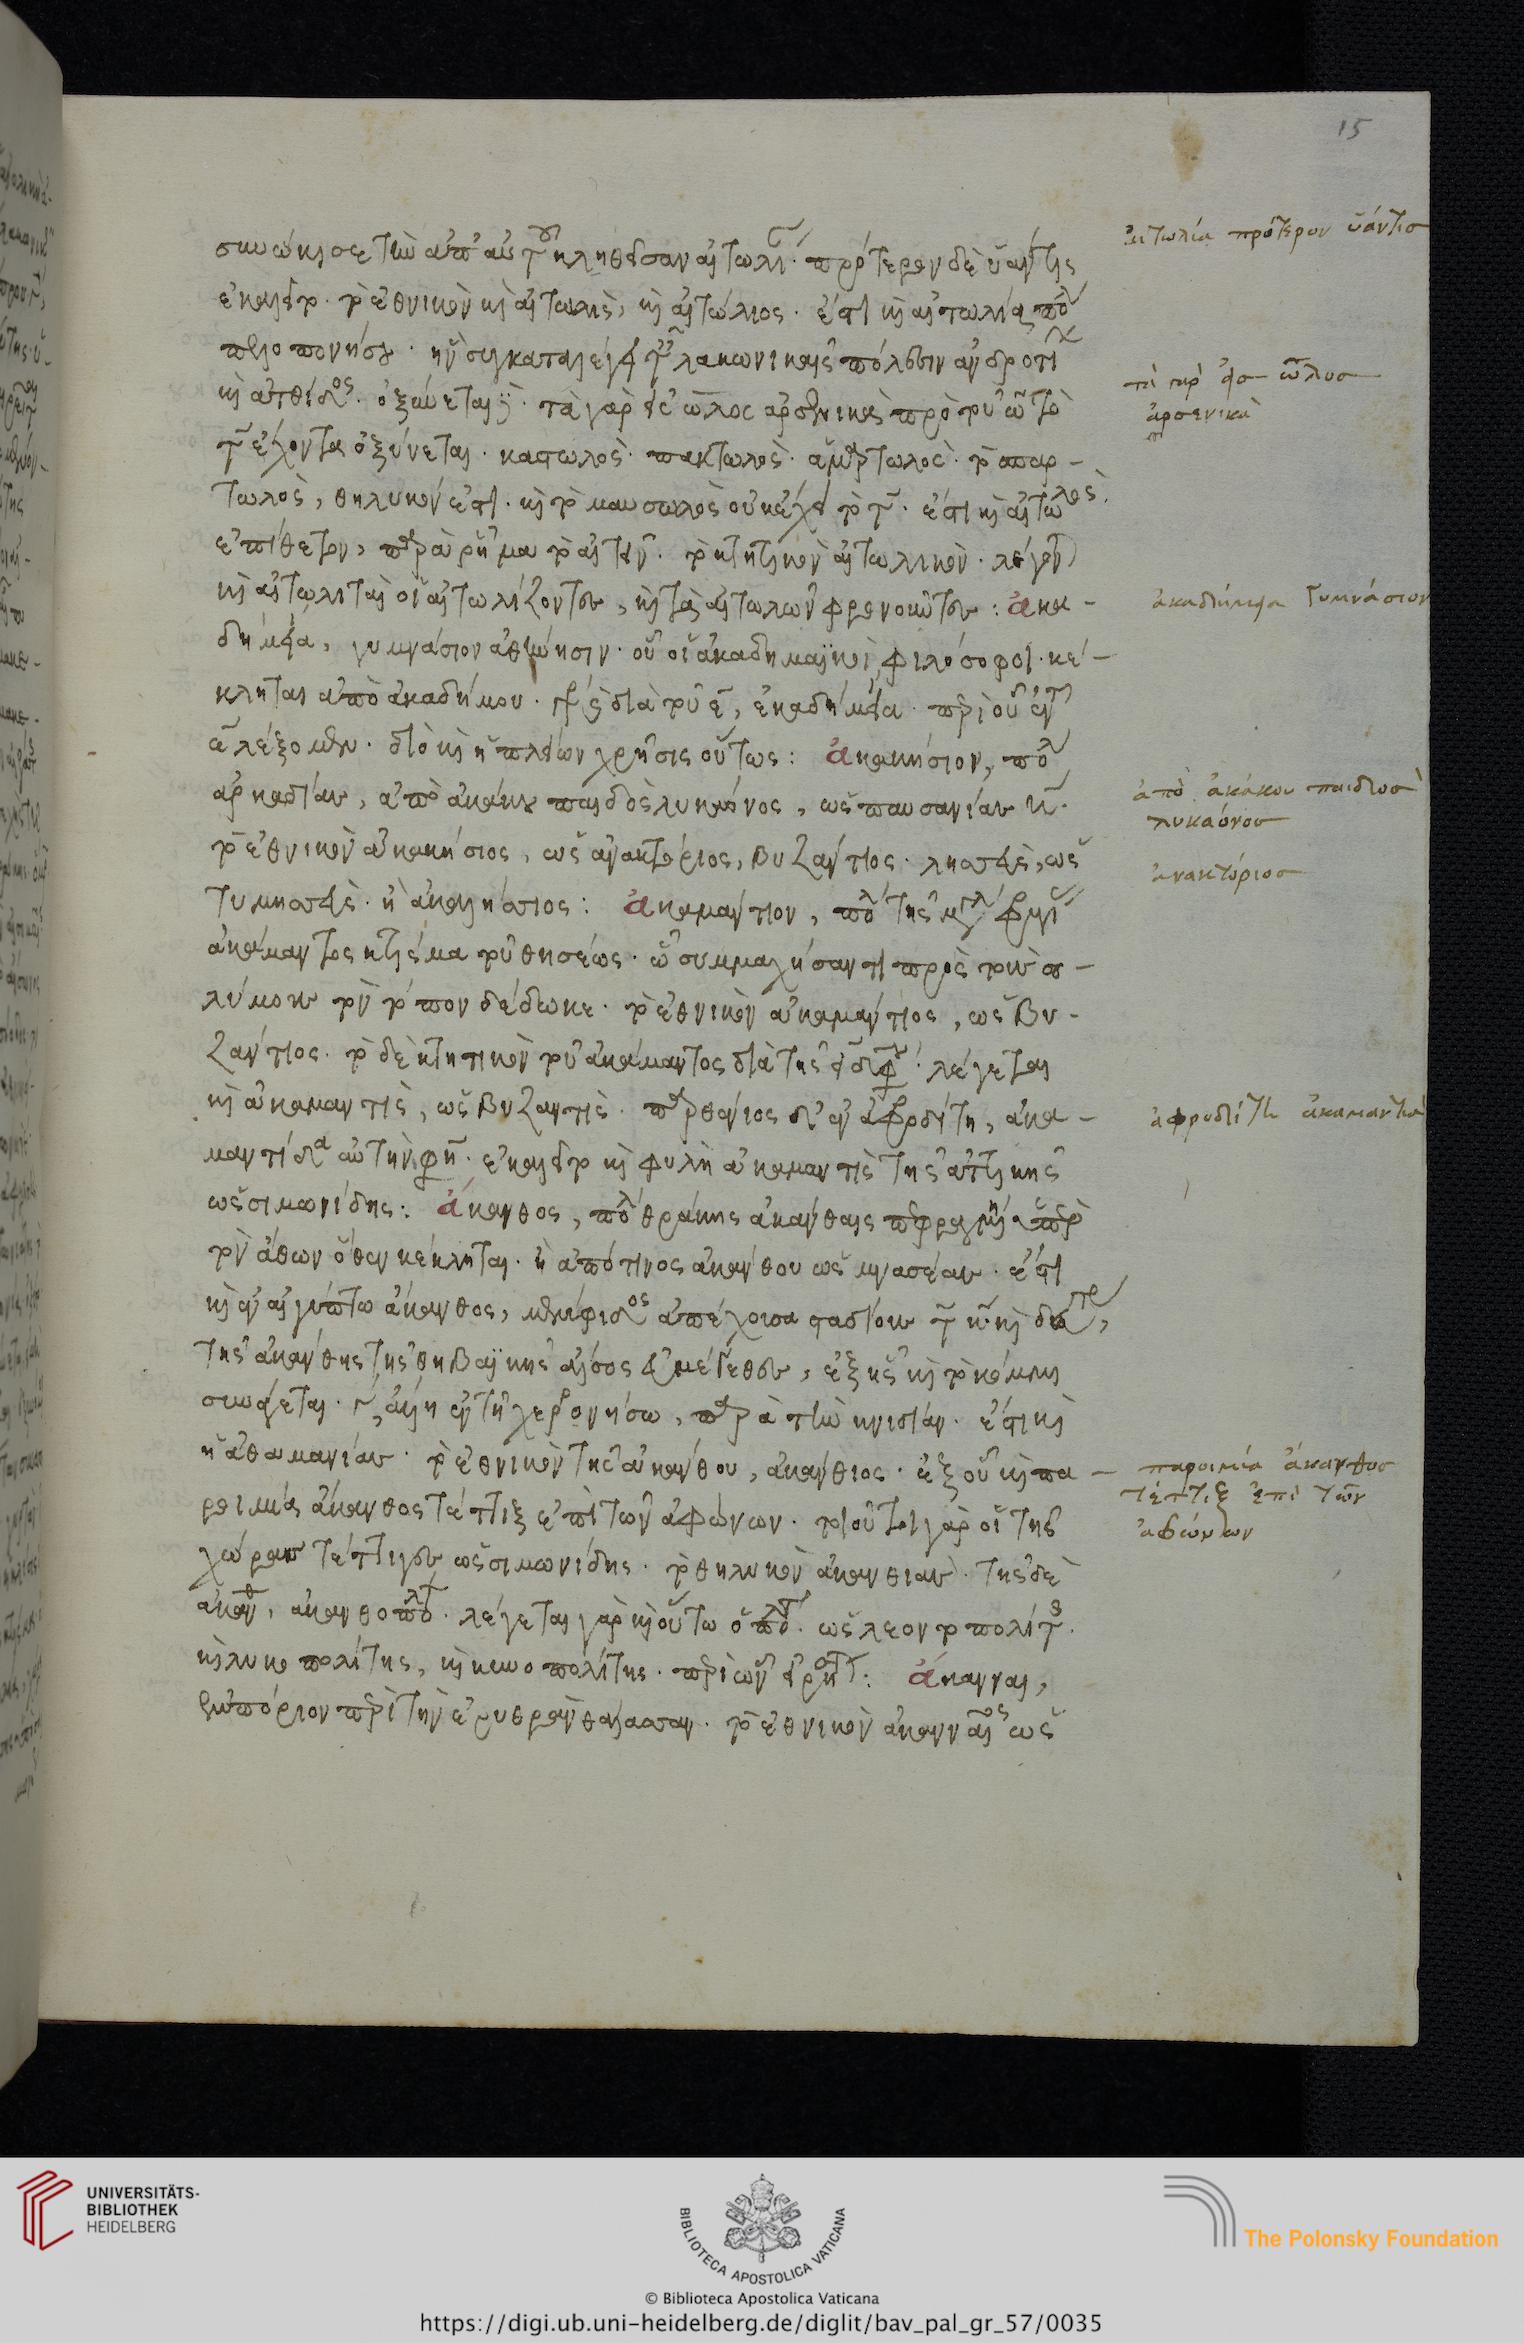 συνώκησε τὴν ἀπ' αὐτοῦ κληθεῖσαν αἰτωλίαν· πρότερον δὲ ὕαντις
ἐκαλεῖτο· τὸ ἐθνικὸν καὶ αἰτωλὶς, καὶ αἰτώλιος. ἔστι καὶ αἰτωλία πόλις
πελοπονήσου· ἣν συγκαταλέγει ταῖς λακωνικαῖς πόλεσιν ἀνδροτίων
καὶ ἀτθίδος. ὀξύνεται τὰ γὰρ εἰς ωλος ἀρσενικὰ πρὸ τοῦ ω τὸ
τ ἔχοντα ὀξύνεται· πακτωλός· ἁμαρτωλός· τὸ σπαρ-
τωλὸς, θηλυκόν ἐστι· καὶ τὸ μαυσωλὸς οὐκ ἔχει τὸ τ· ἔστι καὶ αἰτωλός
ἐπίθετον, παρὰ ῥῆμα τὸ αἰτεῖν. τὸ κτητικὸν αἰτωλικόν. λέγονται
καὶ οἱ αἰτωλίζοντες, καὶ τὰ αἰτωλῶν φρονοῦντες: ἀκα-
δήμεια, γυμνάσιον ἀθήνησιν· οὗ οἱ ἀκαδημαϊκοὶ φιλόσοφοι· κέ-
κληται ἀπὸ ἀκαδήμου. διὰ τοῦ ε, ἑκαδήμεια· περὶ οὗ ἐν τῷ
ε λέξομεν. διὸ καὶ ἡ πλείων χρῆσις οὕτως: ἀκακήσιον, πόλις
ἀρκαδίας, ἀπὸ ἀκάκου παιδὸς λυκαόνος, ὡς παυσανίας η.
τὸ ἐθνικὸν ἀκακήσιος, ὡς ἀνακτόριος, βυζάντιος. ὡς
ἢ ἀκακήσιος: ἀκαμάντιον, πόλις τῆς μεγάλης φρυγίας
ἀκάμαντος κτίσμα τοῦ θησέως· ᾧ συμμαχήσαντι πρὸς τοὺς σο-
λύμους τὸν τόπον δέδωκε. τὸ ἐθνικὸν ἀκαμάντιος, ὡς βυ-
ζάντιος. τὸ δὲ κτητικὸν τοῦ ἀκάμαντος διὰ τῆς ει διφθ. λέγεται
καὶ ἀκαμαντὶς, ὡς βυζαντὶς. παρθένιος δ' ἐν ἀφροδίτῃ, ἀκα-
μαντίδα αὐτήν φησι. ἐκαλεῖτο καὶ φυλὴ ἀκαμαντὶς τῆς ἀττικῆς
ὡς σιμωνίδης: ἄκανθος, πόλις θράκης ἀκάνθαις πεφραγμένη ὑπὲρ
τὸν ἄθων ὅθεν κέκληται. ἢ ἀπό τινος ἀκάνθου ὡς μνασέας. ἔστι
καὶ ἐν αἰγύπτῳ ἄκανθος, μέμφιδος ἀπέχουσα σταδίους τκ. καὶ
τῆς ἀκάνθης τῆς θηβαϊκῆς ἄλσος εὐμέγεθες, ἐξ ἧς καὶ τὸ κόμμι
συνάγεται. γ ἄλλη ἐν τῇ χερρονήσῳ, παρὰ τὴν κνιδίαν. ἔστι καὶ
ἡ ἀθαμανίας. τὸ ἐθνικὸν τῆς ἀκάνθου, ἀκάνθιος. ἐξ οὗ καὶ πα-
ροιμία ἀκάνθιος τέττιξ ἐπὶ τῶν ἀφώνων. τοιοῦτοι γὰρ οἱ τῆς
χώρας τέττιγες ὡς σιμωνίδης. τὸ θηλυκὸν ἀκανθιάς. τῆς δὲ
ἀκάνθ., ἀκανθοπολίτης. λέγεται γὰρ καὶ οὕτω ὁ πολίτης. ὡς λεοντοπολίτης.
καὶ λυκοπολίτης, καὶ κυνοπολίτης. περὶ ὧν εἴρηται: ἄκανναι,
ἐμπόριον περὶ τὴν ἐρυθρὰν θάλασσαν. τὸ ἐθνικὸν ἀκανναῖος ὡς
15
αἰτωλία πρότερον ὕαντισ
τὰ παρ' εἰσ ωλοσ
ἀρσενικὰ
ἀκαδήμεια γυμνάσιον
ἀπὸ ἀκάκου παιδὸσ
λυκαόνοσ
ἀνακτόριοσ
ἀφροδίτη ἀκαμαντὶσ
παροιμία ἄκανθοσ
τέττιξ ἐπὶ τῶν
ἀφώνων
UNIVERSITÄTS-
BIBLIOTHEK
HEIDELBERG
BIBLIOTECA APOSTOLICA VATICANA
The Polonsky Foundation
© Biblioteca Apostolica Vaticana
https://digi.ub.uni-heidelberg.de/diglit/bav_pal_gr_57/0035